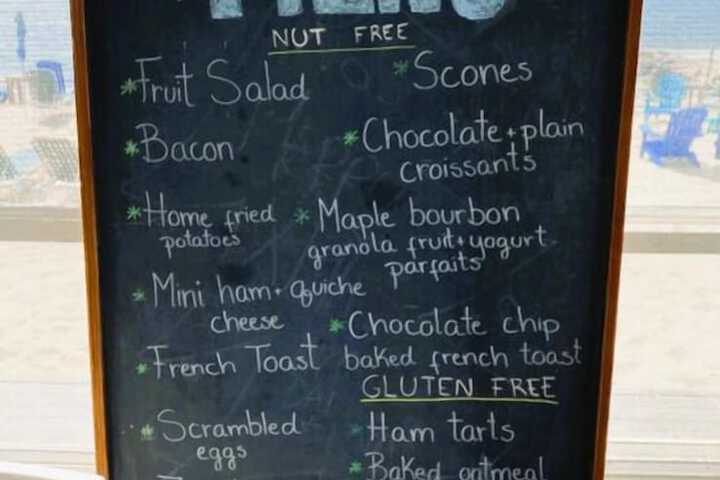 MENU
NUT FREE
*Fruit Salad
*Bacon
*Home fried
potatoes
*Mini ham + quiche
cheese
*French Toast
*Scrambled
eggs
*Scones
*Chocolate + plain
croissants
*Maple bourbon
granola fruit + yogurt
parfaits
*Chocolate chip
baked french toast
GLUTEN FREE
*Ham tarts
*Baked oatmeal